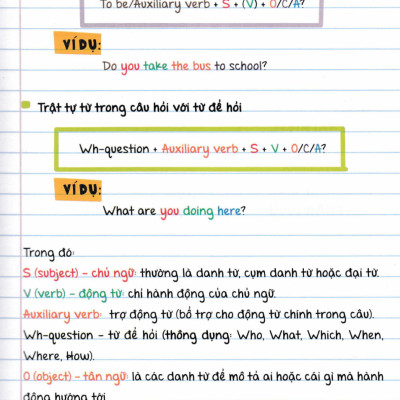 To be/Auxiliary verb + S + (V) + O/C/A?
VÍ DỤ:
Do you take the bus to school?
Trật tự từ trong câu hỏi với từ để hỏi
Wh-question + Auxiliary verb + S + V + O/C/A?
VÍ DỤ:
What are you doing here?
Trong đó:
S (subject) – chủ ngữ: thường là danh từ, cụm danh từ hoặc đại từ.
V (verb) – động từ: chỉ hành động của chủ ngữ.
Auxiliary verb: trợ động từ (bổ trợ cho động từ chính trong câu).
Wh-question – từ để hỏi (thông dụng: Who, What, Which, When,
Where, How).
O (object) – tân ngữ: là các danh từ để mô tả ai hoặc cái gì mà hành
động hướng tới.